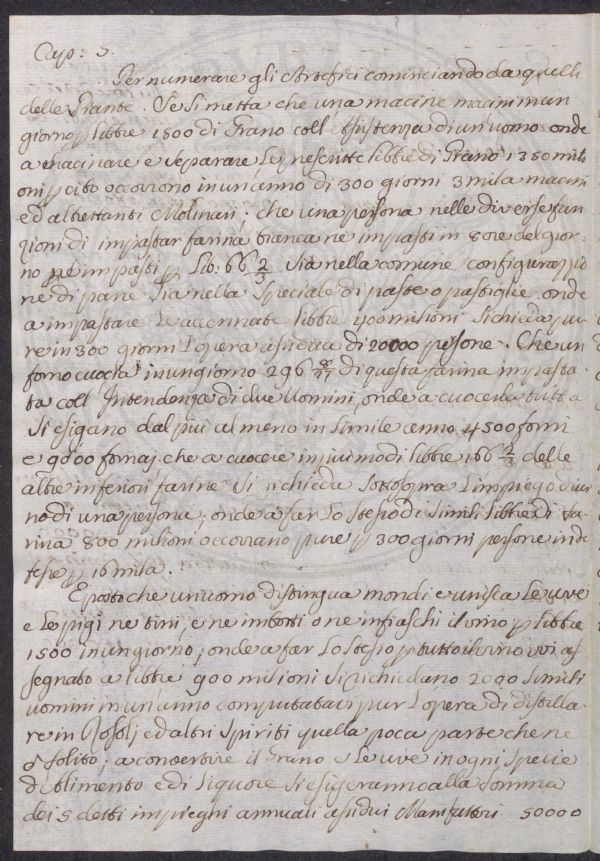 Cap: 5.
Per numerare gli Artefici cominciando da quelli
delle Piante. Se si metta che una macine macini in un
giorno p libbre 1500 di Grano coll'assistenza di un uomo onde
a macinare e separare le prescritte libbre di Grano 1350 mili
oni p cibo occorrono in un anno di 300 giorni 3 mila macini
ed altrettanti Molinari; che una persona nelle diverse fun
zioni di impastar farina bianca ne impasti in 8 ore del gior-
no ne impasti p Lib. 66 2/3 sia nella comune configurazio
ne di pane sia nella speciale di paste o pastiglie, onde
a impastare le accennate libbre 400 milioni si chieda pu
re in 300 giorni l'opera assidua di 20000 persone. Che un
forno cuocia in un giorno 296 di questa farina impasta-
ta coll'Intendenza di due Uomini, onde a cuocerla tutta
si esigano dal più al meno in simile anno 4500 forni
e 9000 fornaj, che a cuocere in più modi libbre 166 2/3 delle
altre inferiori farine si richieda sottosopra l'impiego diur
no di una persona, onde a far lo stesso di simili libbre di fa
rina 800 milioni occorrano pure p 300 giorni persone inde
fesse p 16 mila.
E posto che un uomo distingua mondi e unisca le uve
e le pigi ne tini, e ne imbotti o ne infiaschi il vino p libbre
1500 in un giorno, onde a far lo stesso p tutto il vino ivi as
segnato a libbre 900 milioni si richiedano 2000 simili
uomini in un anno computatavi pur l'opera di distilla
re in Rosolj ed altri spiriti quella poca parte che ne
è solito; a convertire il Grano e le uve in ogni specie
di alimento e di liquore si esigeranno alla somma
dei 5 detti impieghi annuali assidui Manifattori 50000